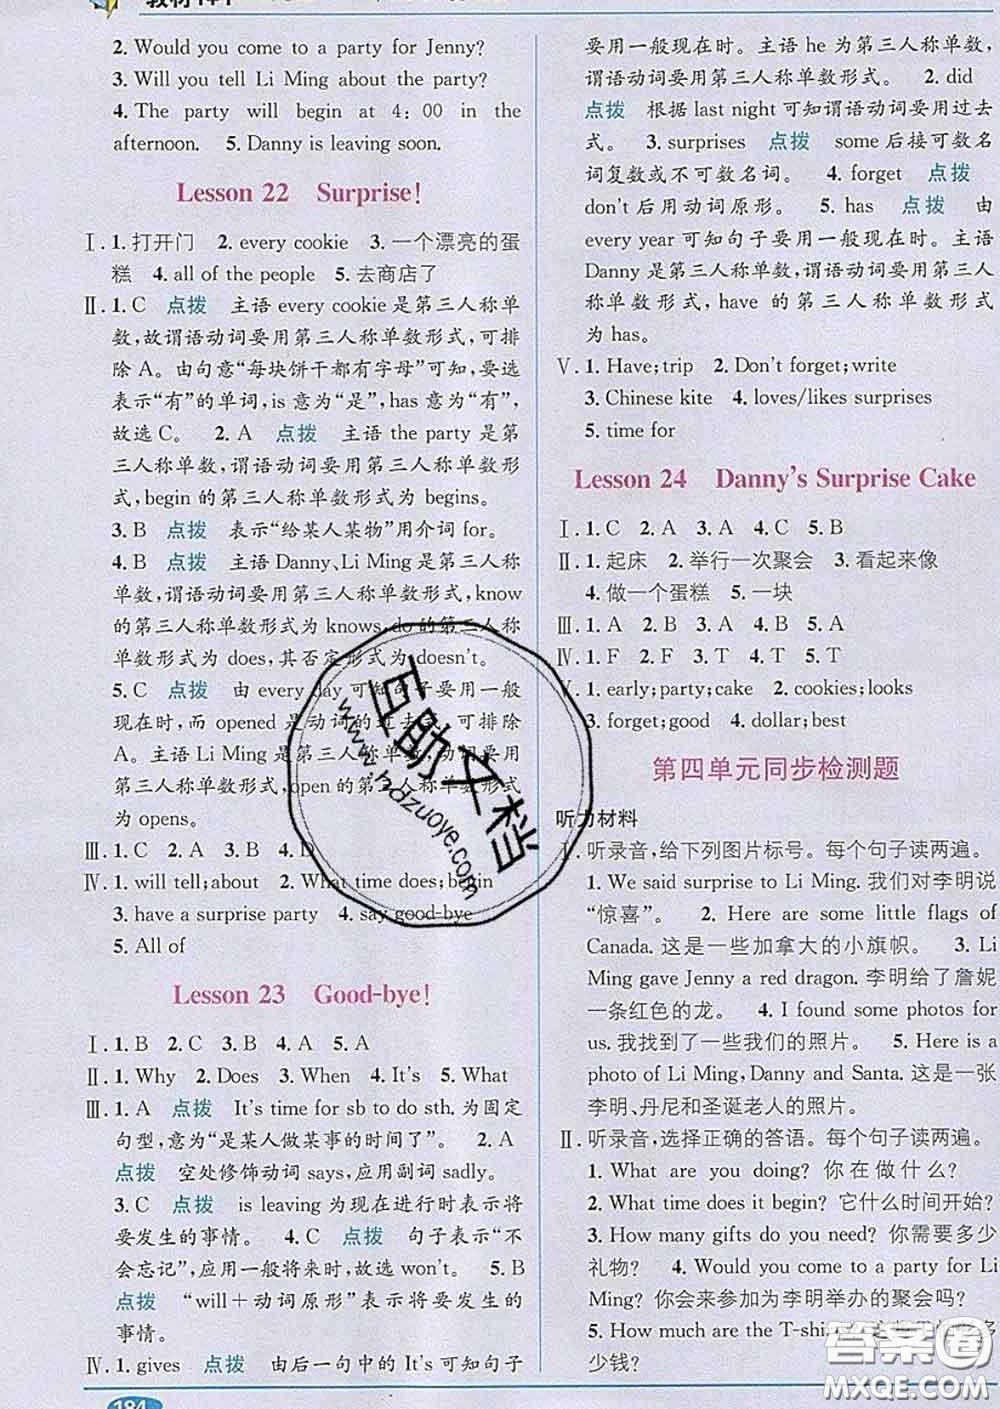 2. Would you come to a party for Jenny?
3. Will you tell Li Ming about the party?
4. The party will begin at 4：00 in the
afternoon. 5. Danny is leaving soon.
Lesson 22 Surprise!
Ⅰ. 1. 打开门 2. every cookie 3. 一个漂亮的蛋
糕 4. all of the people 5. 去商店了
Ⅱ. 1. C 点拨 主语 every cookie 是第三人称单
数,故谓语动词要用第三人称单数形式,可排
除 A。由句意“每块饼干都有字母”可知,要选
表示“有”的单词,is 意为“是”,has 意为“有”,
故选 C。 2. A 点拨 主语 the party 是第
三人称单数,谓语动词要用第三人称单数形
式,begin 的第三人称单数形式为 begins.
3. B 点拨 表示“给某人某物”用介词 for。
4. B 点拨 主语 Danny、Li Ming 是第三人
称单数,谓语动词要用第三人称单数形式,know
的第三人称单数形式为 knows,do 的第三人称
单数形式为 does,其否定形式为 doesn't。
5. C 点拨 由 every day 可知句子要用一般
现在时,而 opened 是动词的过去式,可排除
A。主语 Li Ming 是第三人称单数,谓语动词要用
第三人称单数形式,open 的第三人称单数形式
为 opens.
Ⅲ. 1. C 2. A 3. B 4. D
Ⅳ. 1. will tell;about 2. What time does;begin
3. have a surprise party 4. say good-bye
5. All of
Lesson 23 Good-bye!
Ⅰ. 1. B 2. C 3. B 4. A 5. A
Ⅱ. 1. Why 2. Does 3. When 4. It's 5. What
Ⅲ. 1. A 点拨 It's time for sb to do sth. 为固定
句型,意为“是某人做某事的时间了”。 2. A
点拨 空处修饰动词 says,应用副词 sadly。
3. C 点拨 is leaving 为现在进行时表示将
要发生的事情。 4. C 点拨 句子表示“不
会忘记”,应用一般将来时,故选 won't。 5. B
点拨 “will＋动词原形”表示将要发生的
事情。
Ⅳ. 1. gives 点拨 由后一句中的 It's 可知句子
184
要用一般现在时。主语 he 为第三人称单数,
谓语动词要用第三人称单数形式。 2. did
点拨 根据 last night 可知谓语动词要用过去
式。 3. surprises 点拨 some 后接可数名
词复数或不可数名词。 4. forget 点拨
don't 后用动词原形。 5. has 点拨 由
every year 可知句子要用一般现在时。主语
Danny 是第三人称单数,谓语动词要用第三人
称单数形式,have 的第三人称单数形式
为 has.
Ⅴ. 1. Have;trip 2. Don't forget;write
3. Chinese kite 4. loves/likes surprises
5. time for
Lesson 24 Danny's Surprise Cake
Ⅰ. 1. C 2. A 3. A 4. C 5. B
Ⅱ. 1. 起床 2. 举行一次聚会 3. 看起来像
4. 做一个蛋糕 5. 一块
Ⅲ. 1. A 2. A 3. B 4. B 5. A
Ⅳ. 1. F 2. F 3. T 4. T 5. T
Ⅴ. 1. early;party;cake 2. cookies;looks
3. forget;good 4. dollar;best
第四单元同步检测题
听力材料
Ⅰ. 听录音,给下列图片标号。每个句子读两遍。
1. We said surprise to Li Ming. 我们对李明说
“惊喜”。 2. Here are some little flags of
Canada. 这是一些加拿大的小旗帜。 3. Li
Ming gave Jenny a red dragon. 李明给了詹妮
一条红色的龙。 4. I found some photos for
us. 我找到了一些我们的照片。 5. Here is a
photo of Li Ming, Danny and Santa. 这是一张
李明、丹尼和圣诞老人的照片。
Ⅱ. 听录音,选择正确的答语。每个句子读两遍。
1. What are you doing? 你在做什么?
2. What time does it begin? 它什么时间开始?
3. How many gifts do you need? 你需要多少
礼物? 4. Would you come to a party for Li
Ming? 你会来参加为李明举办的聚会吗?
5. How much are the T-shirts?
少钱?
互助文档
www.hdzuoye.com
答案圈
MXQE.COM